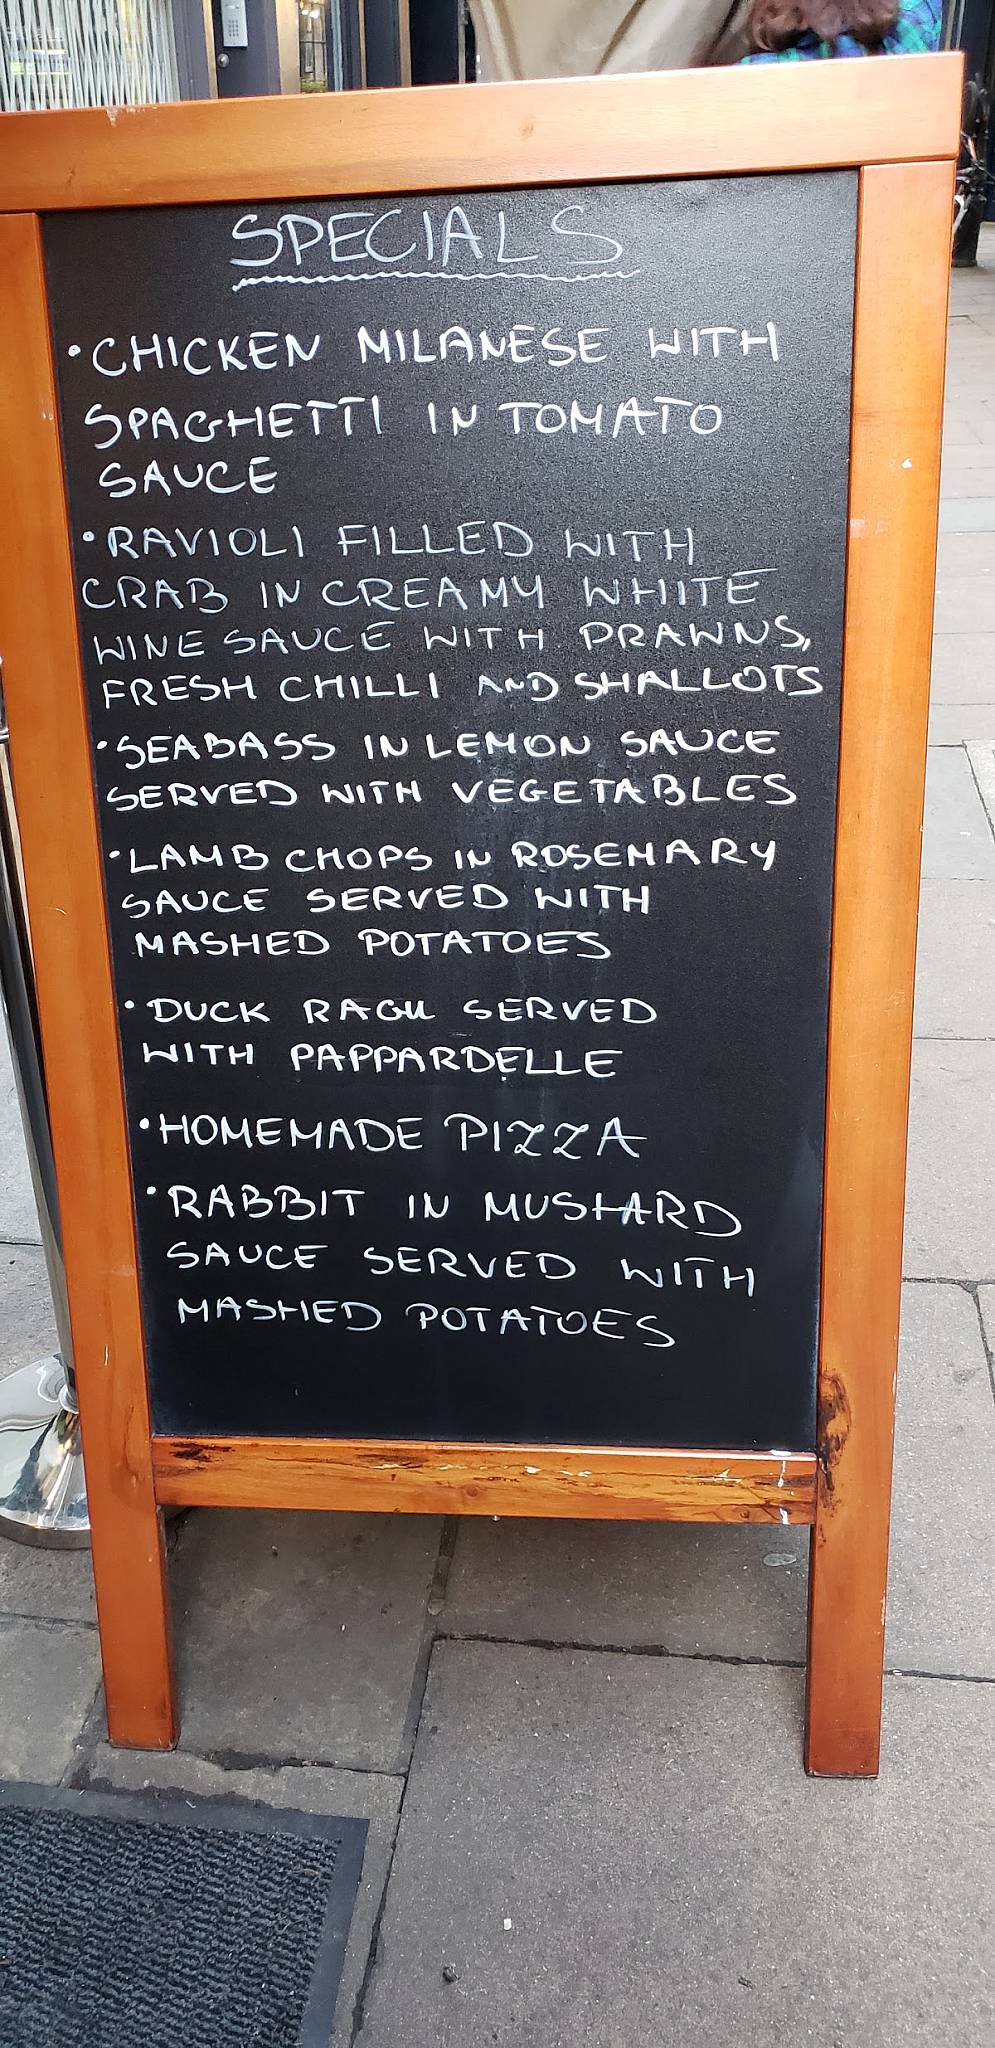 SPECIALS
• CHICKEN MILANESE WITH
SPAGHETTI IN TOMATO
SAUCE
• RAVIOLI FILLED WITH
CRAB IN CREAMY WHITE
WINE SAUCE WITH PRAWNS,
FRESH CHILLI AND SHALLOTS
• SEABASS IN LEMON SAUCE
SERVED WITH VEGETABLES
• LAMB CHOPS IN ROSEMARY
SAUCE SERVED WITH
MASHED POTATOES
• DUCK RAGU SERVED
WITH PAPPARDELLE
• HOMEMADE PIZZA
• RABBIT IN MUSTARD
SAUCE SERVED WITH
MASHED POTATOES